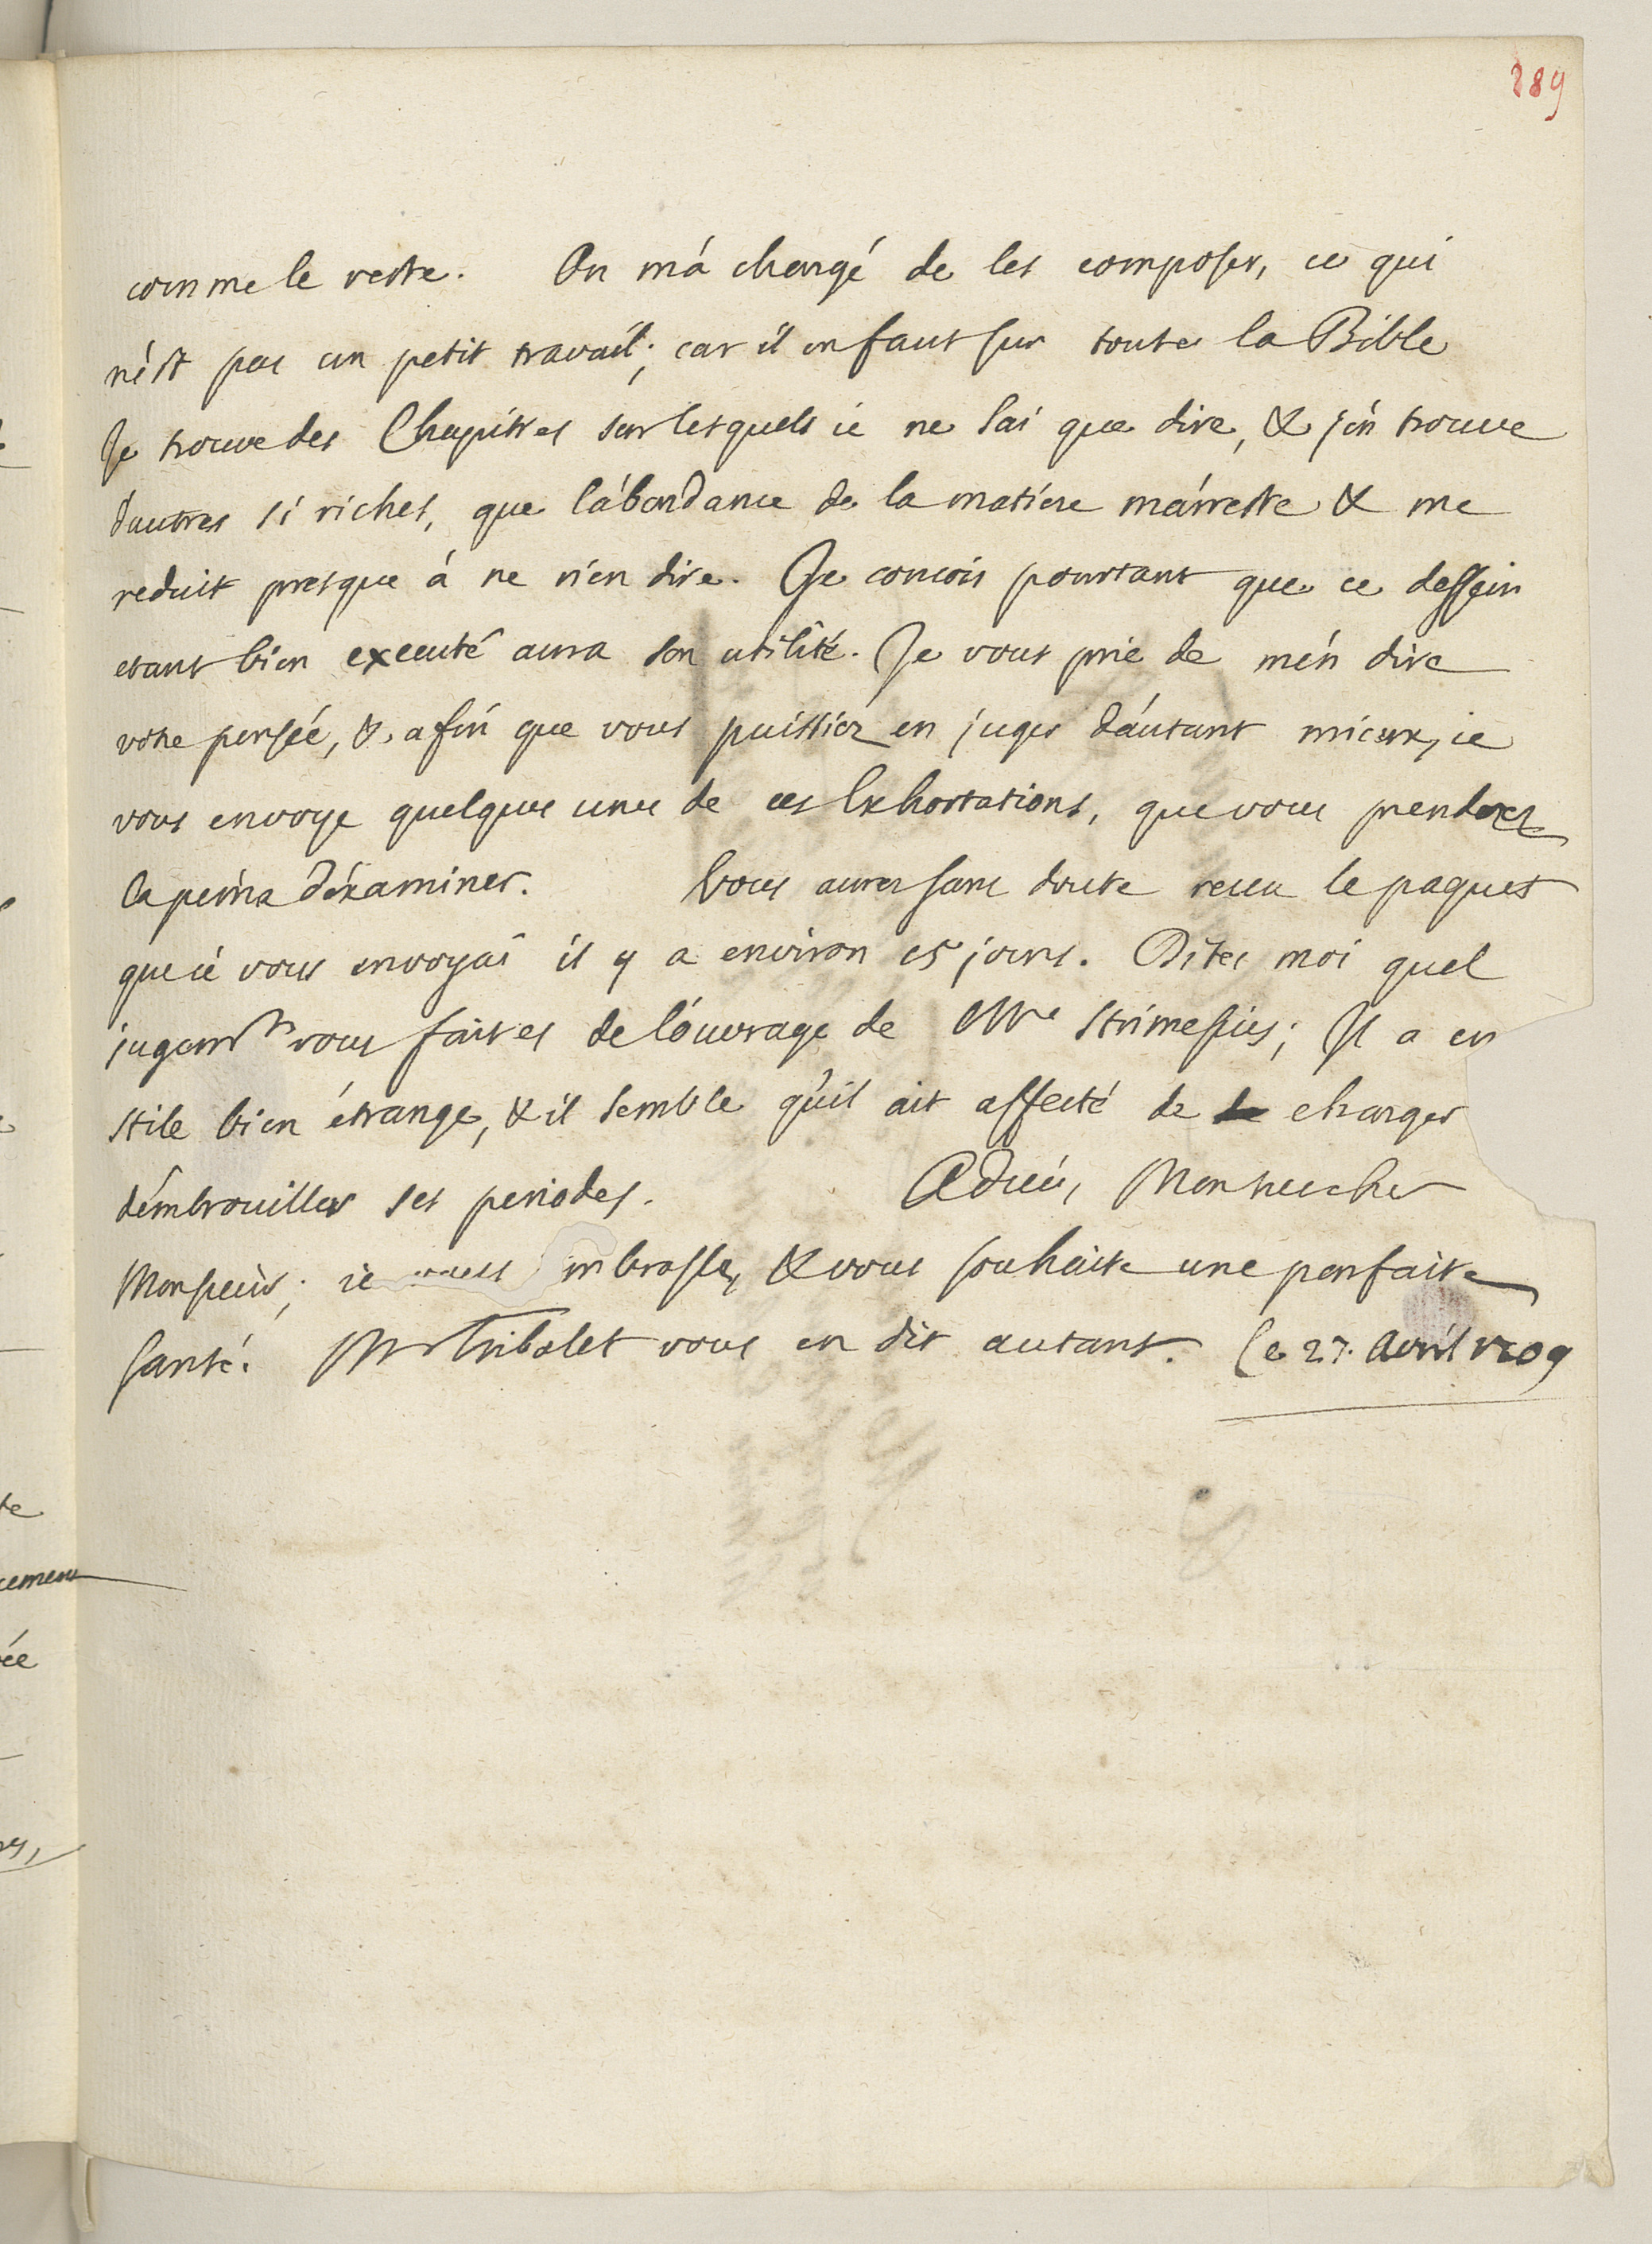 289
comme le reste. On m'a chargé de les composer, ce qui
n'est pas un petit travail; car il en faut sur toute la Bible
Je trouve des Chapitres sur lesquels ie ne sai que dire, & j'en trouve
d'autres si riches, que l'abondance de la matiere m'arreste & me
reduit presque à ne rien dire. Je concois pourtant que ce dessein
etant bien executé aura son utilité. Je vous prie de m'en dire
votre pensée, & afin que vous puissiez en juger d'autant mieux, ie
vous envoye quelques unes de ces Exhortations, que vous prendrez
la peine d'éxaminer. Vous aurez sans doute receu le paquet
que ie vous envoyai il y a environ 15 jours. Dites moi quel
jugemt vous faites de l'ouvrage de Mr Strimesius; Il a un
stile bien étrange, & il semble qu'il ait affecté de charger
d'embrouiller ses periodes. Adieu, Mon tres cher
Monsieur; ie vous embrasse, & vous souhaite une parfaite
santé. Mr Tribolet vous en dit autant. Le 27. Avril 1709